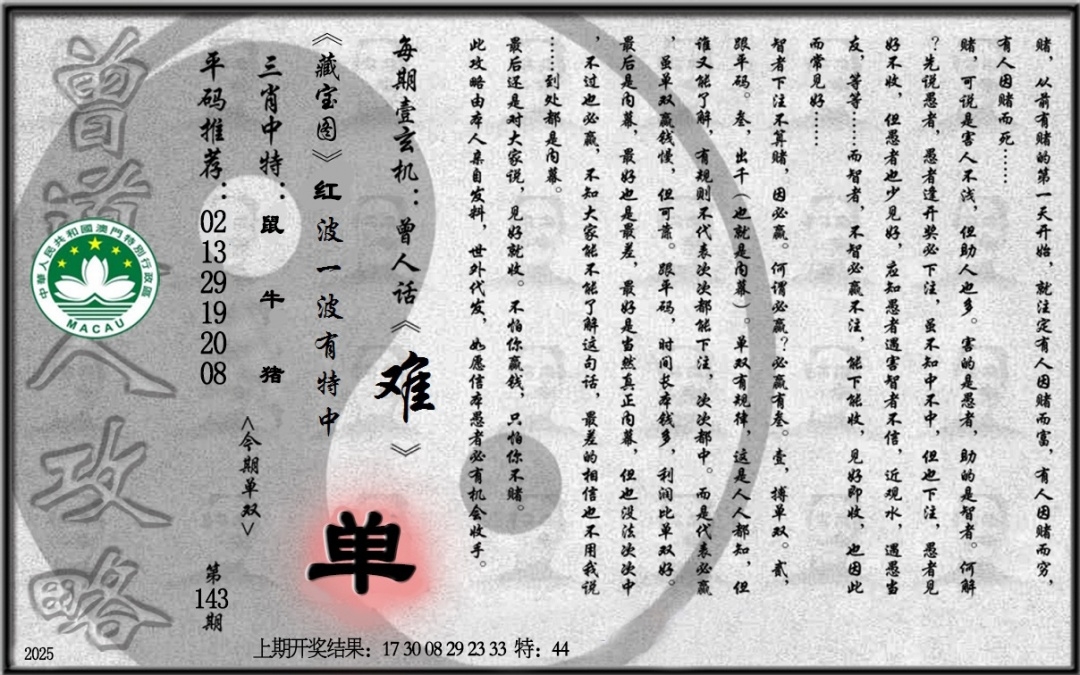 赌，从前有赌的第一天开始，就注定有人因赌而富，有人因赌而穷，
有人因赌而死……
赌，可说是害人不浅，但助人也多。害的是愚者，助的是智者。何解
？先说愚者，愚者逢开奖必下注，虽不知中不中，但也下注，愚者见
好不收，但愚者也少见好，应知愚者遇害智者不信，近观水，遇愚当
友，等等……而智者，不智必赢不注，能下能收，见好即收，也因此
而常见好……
智者下注不算赌，因必赢。何谓必赢？必赢有叁。壹，搏单双。贰，
跟平码。叁，出千（也就是内幕）。单双有规律，这是人人都知，但
谁又能了解，有规则不代表次次都能下注，次次都中。而是代表必赢
，虽单双赢钱慢，但可靠。跟平码，时间长本钱多，利润比单双好。
最后是内幕，最好也是最差，最好是当然真正内幕，但也没法次次中
，不过也必赢，不知大家能不能了解这句话，最差的相信也不用我说
……到处都是内幕。
最后还是对大家说，见好就收。不怕你赢钱，只怕你不赌。
此攻略由本人亲自发料，世外代发，如愿信本愚者必有机会收手。
每期壹玄机：曾人话《难》
《藏宝图》红波一波有特中
三肖中特：鼠 牛 猪
平码推荐：02 13 29 19 20 08
<今期单双>
单
第143期
曾道人攻略
中華人民共和國澳門特別行政區
MACAU
2025
上期开奖结果：17 30 08 29 23 33 特：44